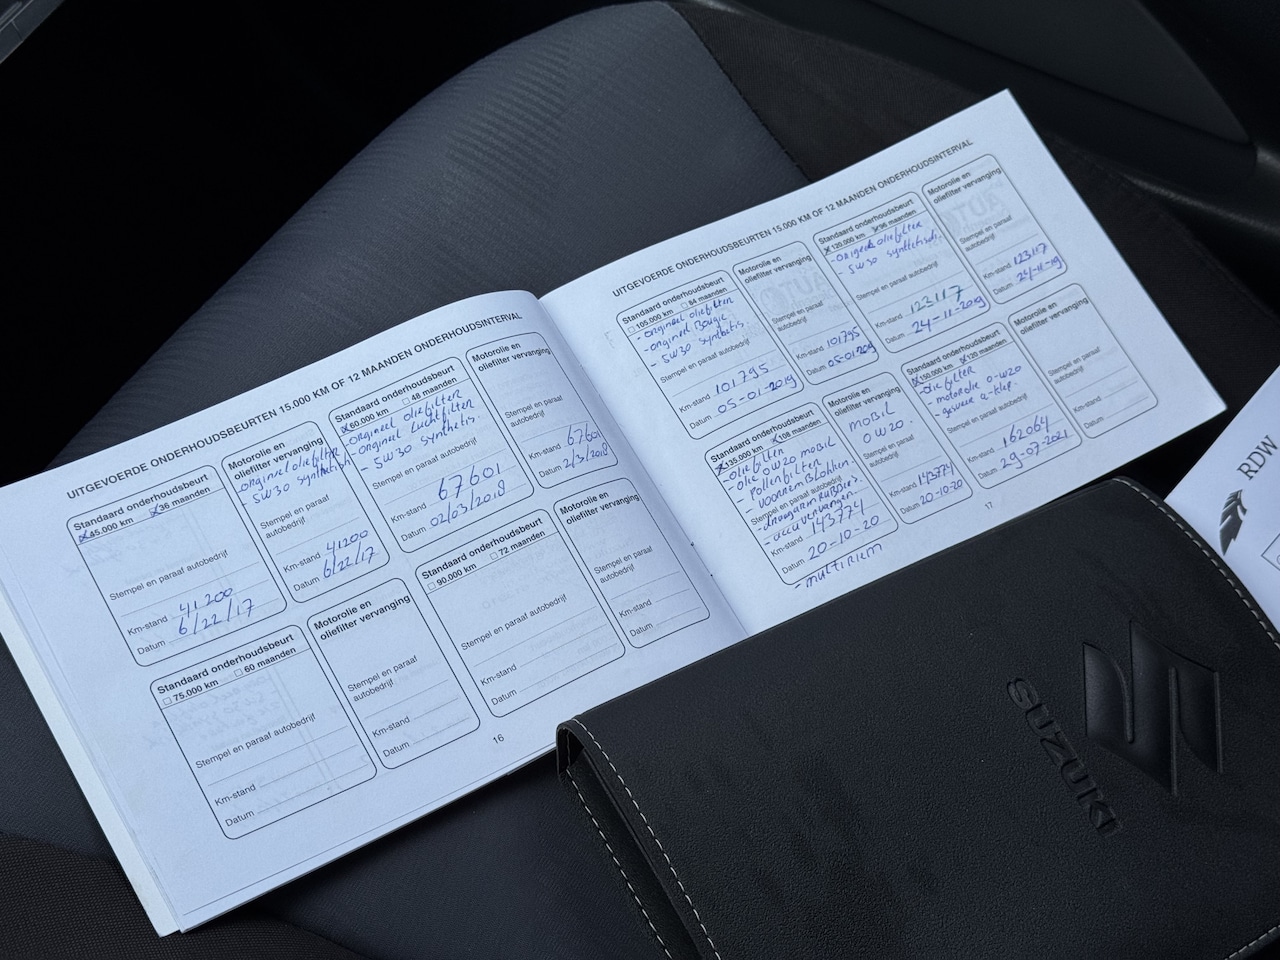 UITGEVOERDE ONDERHOUDSBEURTEN 15.000 KM OF 12 MAANDEN ONDERHOUDSINTERVAL
Standaard onderhoudsbeurt
☒ 45.000 km ☒ 36 maanden
Stempel en paraaf autobedrijf
Km-stand 41200
Datum 6/22/17
Motorolie en
oliefilter vervanging
origineel oliefilter
- 5W30 synthetisch
Stempel en paraaf
autobedrijf
Km-stand 41200
Datum 6/22/17
Standaard onderhoudsbeurt
☒ 60.000 km ☐ 48 maanden
- origineel oliefilter
- origineel Luchtfilter
- 5W30 synthetis.
Stempel en paraaf autobedrijf
Km-stand 67601
Datum 02/03/2018
Motorolie en
oliefilter vervanging
Stempel en paraaf
autobedrijf
Km-stand 67601
Datum 2/3/2018
Standaard onderhoudsbeurt
☐ 75.000 km ☐ 60 maanden
Stempel en paraaf autobedrijf
Km-stand
Datum
Motorolie en
oliefilter vervanging
Stempel en paraaf
autobedrijf
Km-stand
Datum
Standaard onderhoudsbeurt
☐ 90.000 km ☐ 72 maanden
Stempel en paraaf autobedrijf
Km-stand
Datum
Motorolie en
oliefilter vervanging
Stempel en paraaf
autobedrijf
Km-stand
Datum
16
UITGEVOERDE ONDERHOUDSBEURTEN 15.000 KM OF 12 MAANDEN ONDERHOUDSINTERVAL
Standaard onderhoudsbeurt
☐ 105.000 km ☐ 84 maanden
- origineel oliefilter
- origineel Bougie
- 5W30 synthetis
Stempel en paraaf autobedrijf
Km-stand 101795
Datum 05-01-2019
Motorolie en
oliefilter vervanging
Stempel en paraaf
autobedrijf
Km-stand 101795
Datum 05-01-2019
Standaard onderhoudsbeurt
☒ 120.000 km ☒ 96 maanden
- origeel oliefilter
- 5W30 synthetisch.
Stempel en paraaf autobedrijf
Km-stand 123117
Datum 24-11-2019
Motorolie en
oliefilter vervanging
Stempel en paraaf
autobedrijf
Km-stand 123117
Datum 24-11-19
Standaard onderhoudsbeurt
☒ 135.000 km ☒ 108 maanden
- oliefilter
- olie 0W20 mobil
- Pollenfilter
- voorremBlokken.
Stempel en paraaf autobedrijf
- accu vervangen.
Km-stand 143774
Datum 20-10-20
- multiriem
Motorolie en
oliefilter vervanging
mobil
0W20.
Stempel en paraaf
autobedrijf
Km-stand 143774
Datum 20-10-20
Standaard onderhoudsbeurt
☒ 150.000 km ☒ 120 maanden
- oliefilter
- motorolie 0-W20
Stempel en paraaf autobedrijf
Km-stand 162064
Datum 29-07-2021
Motorolie en
oliefilter vervanging
Stempel en paraaf
autobedrijf
Km-stand
Datum
17
RDW
SUZUKI